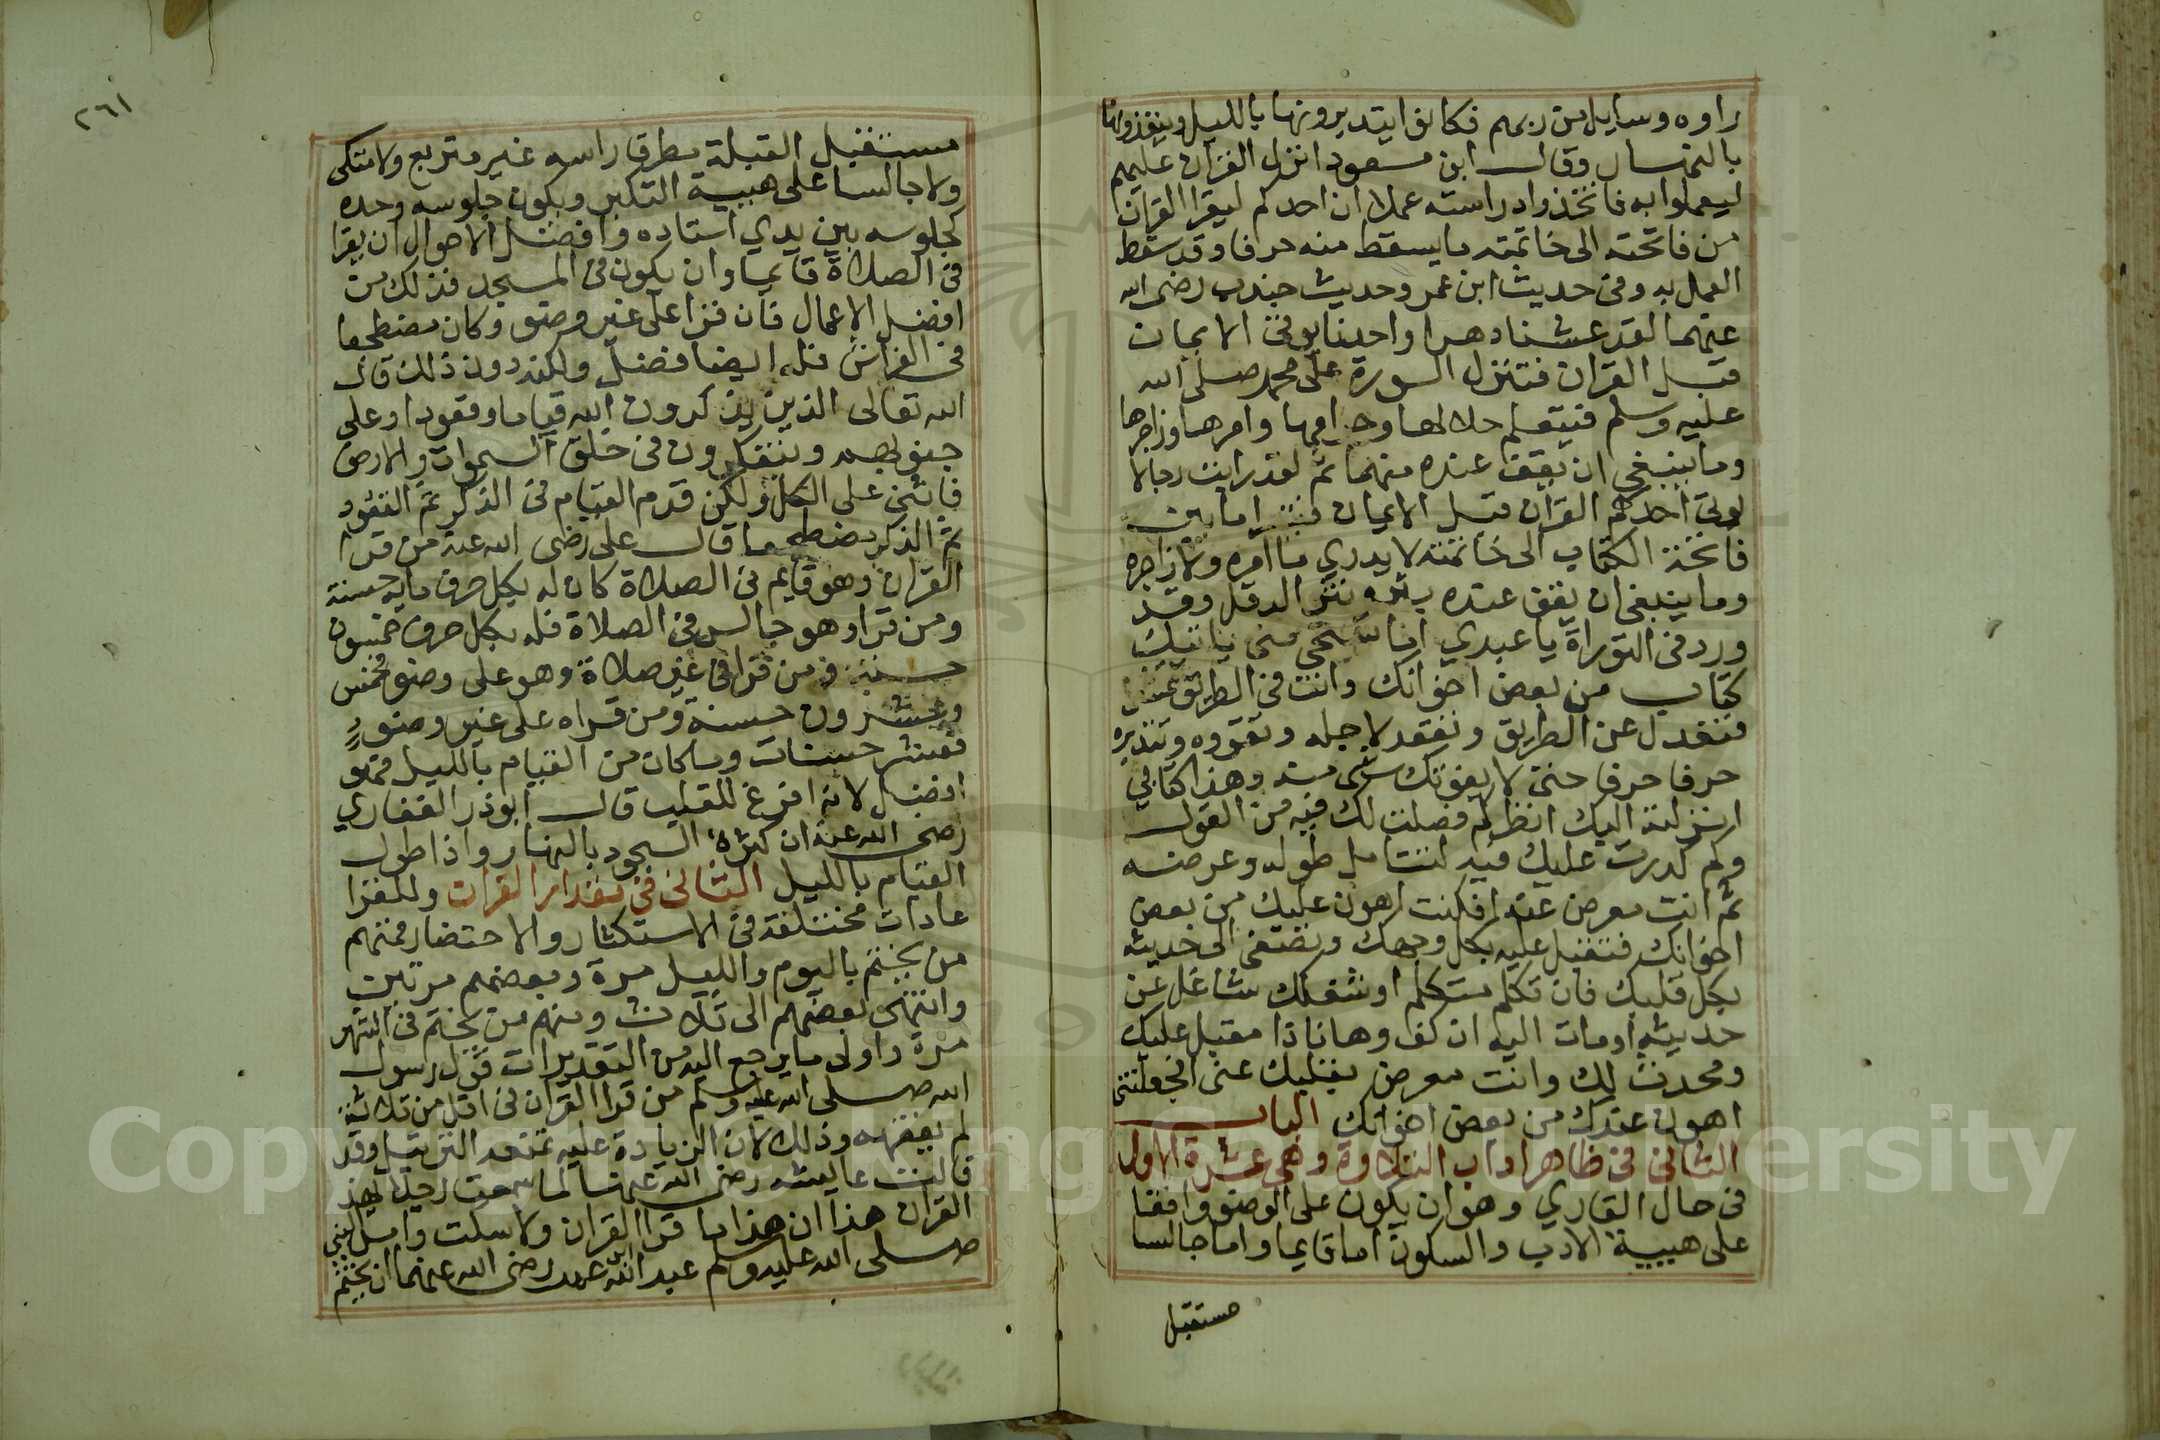 راوه وسايل من ربهم فكانوا يتدبرونها بالليل وينفذونها
بالنهار وقال ابن مسعود انزل القران عليهم
ليعملوا به فاتخذوا دراسته عملا ان احدكم ليقرا القران
من فاتحته الى خاتمته ما يسقط منه حرفا وقد سقط
العمل به وفى حديث ابن عمر وحديث جندب رضى الله
عنهما لقد عشنا دهرا واحدنا يوتى الايمان
قبل القران فتنزل السورة على محمد صلى الله
عليه وسلم فيتعلم حلالها وحرامها وامرها وزاجرها
وما ينبغي ان يقف عنده منها ثم لقد رايت رجالا
يوتى احدهم القران قبل الايمان فيقرا ما بين
فاتحة الكتاب الى خاتمته لا يدري ما امره ولا زاجره
وما ينبغى ان يقف عنده ينثره نثر الدقل وقد
ورد فى التوراة يا عبدي اما تستحي منى ياتيك
كتاب من بعض اخوانك وانت فى الطريق تمشى
فتعدل عن الطريق وتقعد لاجله وتقروه وتتدبره
حرفا حرفا حتى لا يفوتك شى منه وهذا كتابي
انزلته اليك انظر كم فصلت لك فيه من القول
وكم كررت عليك فيه لتتامل طوله وعرضه
ثم انت معرض عنه افكنت اهون عليك من بعض
اخوانك فتقبل عليه بكل وجهك وتصغى الى حديثه
بكل قلبك فان تكلم متكلم او شغلك شاغل عن
حديثه اومات اليه ان كف وها انا ذا مقبل عليك
ومحدث لك وانت معرض بقلبك عنى افجعلتنى
اهون عندك من بعض اخوانك الباب
الثانى فى ظاهر اداب التلاوة وهى عشرة الاول
فى حال القاري وهو ان يكون على الوضوء واقفا
على هيبة الادب والسكون اما قايما واما جالسا
مستقبل
٢٦١
مستقبل القبلة مطرقا راسه غير متربع ولا متكى
ولا جالسا على هيبة التكبر ويكون جلوسه وحده
كجلوسه بين يدي استاده وافضل الاحوال ان يقرا
فى الصلاة قايما وان يكون فى المسجد فذلك من
افضل الاعمال فان قرا على غير وضو وكان مضطجعا
فى الفراش فله ايضا فضل ولكنه دون ذلك قال
الله تعالى الذين يذكرون الله قياما وقعودا وعلى
جنوبهم ويتفكرون فى خلق السموات والارض
فاثنى على الكل ولكن قدم القيام فى الذكر ثم القعود
ثم الذكر مضطجعا قال على رضى الله عنه من قرا
القران وهو قايم فى الصلاة كان له بكل حرف ماية حسنة
ومن قرا وهو جالس فى الصلاة فله بكل حرف خمسون
حسنة ومن قرا فى غير صلاة وهو على وضو فخمس
وعشرون حسنة ومن قراه على غير وضوء
فعشر حسنات وما كان من القيام بالليل فهو
افضل لانه افرغ للقلب قال ابو ذر الغفاري
رضى الله عنه ان كثرة السجود بالنهار واذا طول
القيام بالليل الثانى فى مقدار القران وللقرا
عادات مختلفة فى الاستكثار والاحتضار فمنهم
من يختم باليوم والليل مرة وبعضهم مرتين
وانتهى بعضهم الى ثلاث ومنهم من يختم فى الشهر
مرة واولى ما يرجع اليه من التقديرات قول رسول
الله صلى الله عليه وسلم من قرا القران فى اقل من ثلاثة
لم يفقهه وذلك لان الزيادة عليه تمنعه الترتيل وقد
قالت عايشه رضى الله عنها لما سمعت رجلا يهذ
القران هذا ان هذا ما قرا القران ولا سكت وامر النبي
صلى الله عليه وسلم عبد الله ابن عمر رضى الله عنهما ان يختم